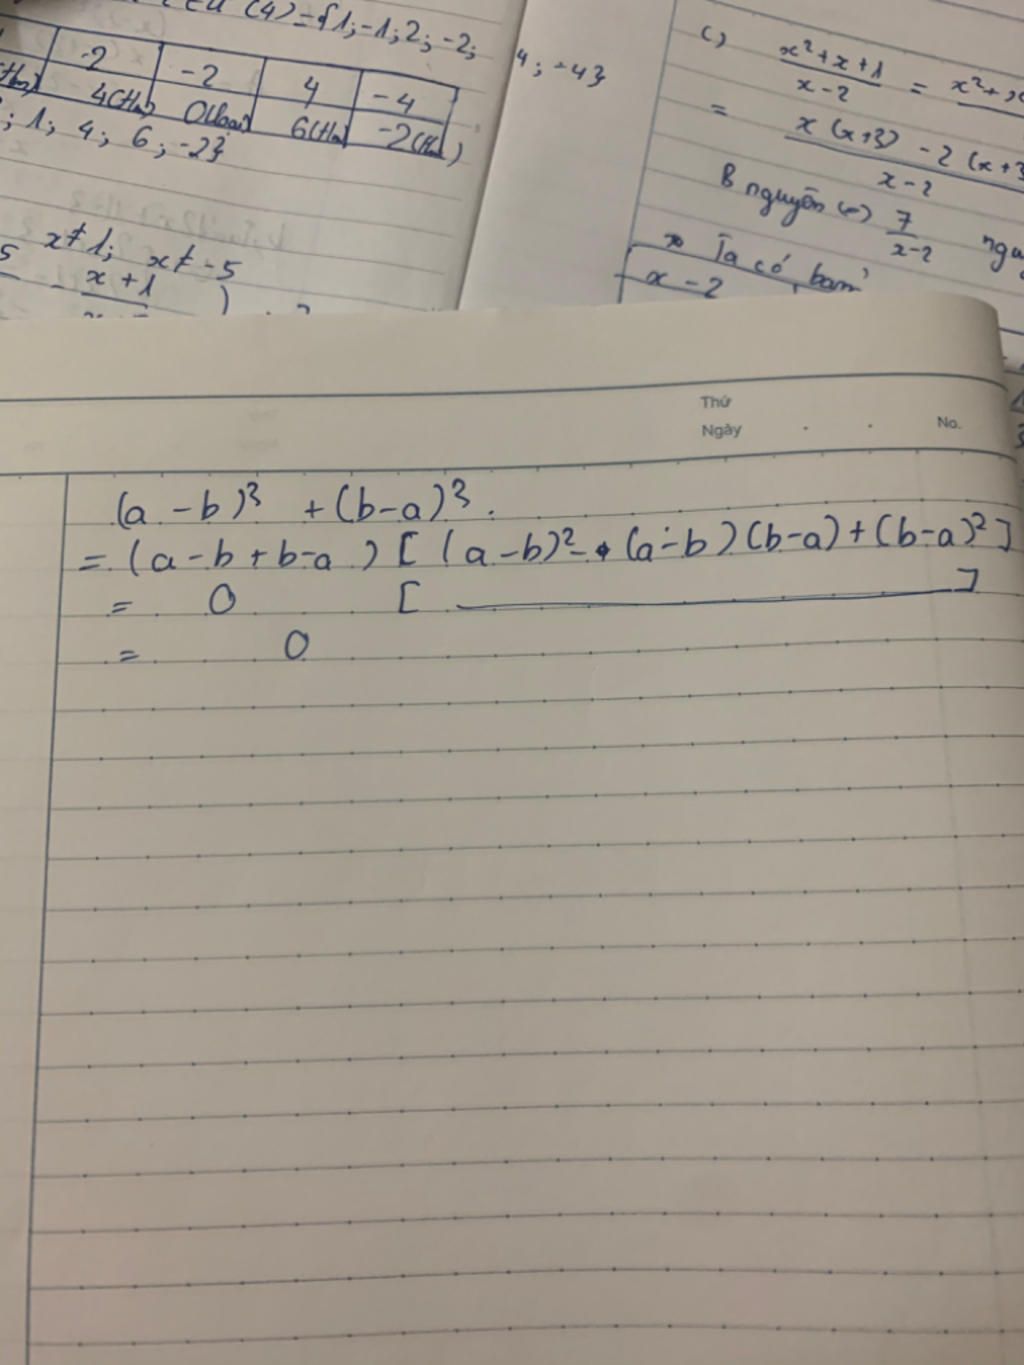 (4) = {1; -1; 2; -2;
-2 -2 4 -4
4(tm) 0(loại) 6(tm) -2(tm)
; 1; 4; 6; -2}
x ≠ 1; x ≠ -5
5 x + 1 )
4; -4}
c) x² + x + 1 / x - 2 = x² +
= x(x+3) - 2(x+3 / x - 2
B nguyên (=) 7 / x-2
Ta có bảng
x - 2
Thứ
Ngày . . No.
(a - b)³ + (b - a)³.
= (a - b + b - a) [(a - b)² - (a - b)(b - a) + (b - a)²]
= 0 [ ]
= 0